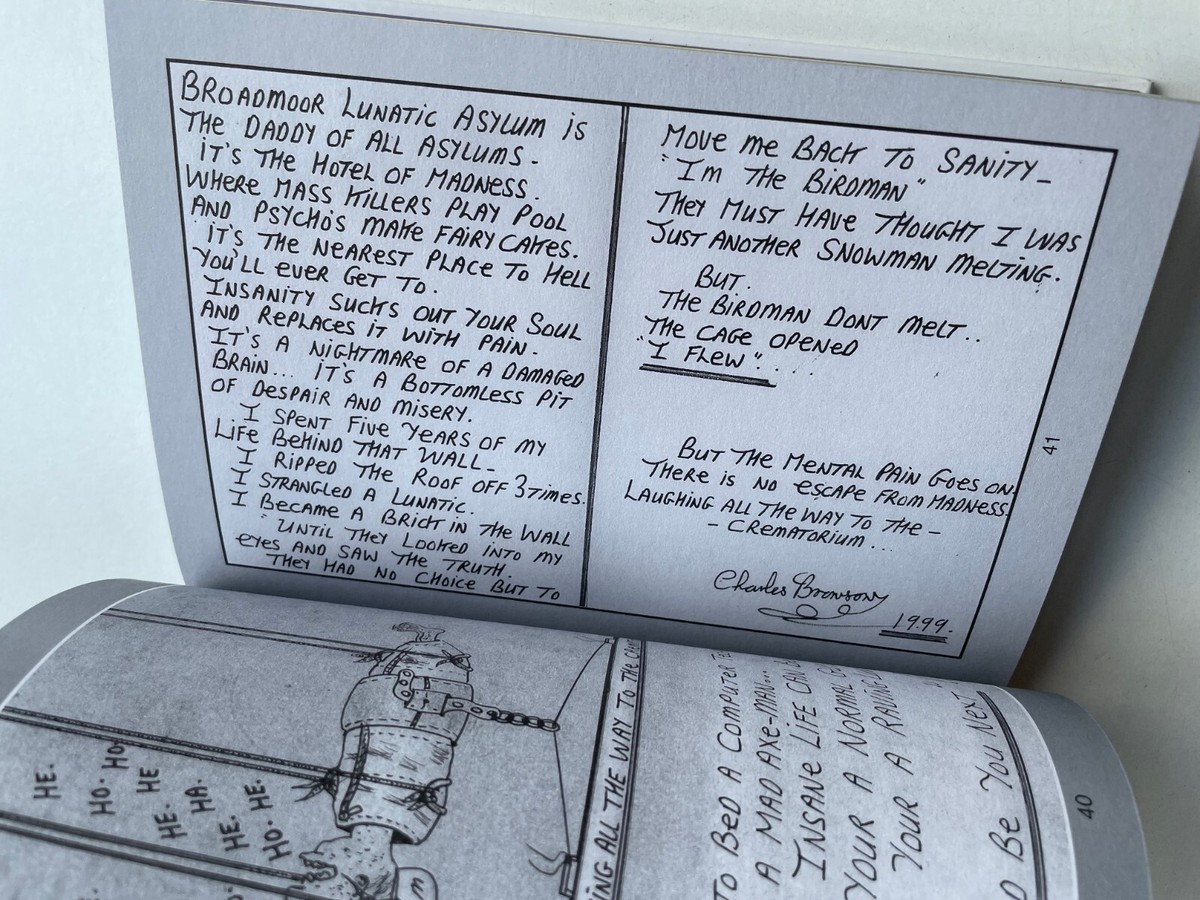 BROADMOOR LUNATIC ASYLUM iS
THE DADDY OF ALL ASYLUMS -
iT'S THE HOTEL OF MADNESS.
WHERE MASS KILLERS PLAY POOL
AND PSYCHO'S MAKE FAIRY CAKES.
iT'S THE NEAREST PLACE TO HELL
YOU'LL EVER GET TO.
INSANITY SUCKS OUT YOUR SOUL
AND REPLACES IT WITH PAIN.
IT'S A NIGHTMARE OF A DAMAGED
BRAIN... IT'S A BOTTOMLESS PIT
OF DESPAIR AND MISERY.
I SPENT FIVE YEARS OF MY
LIFE BEHIND THAT WALL_
I RIPPED THE ROOF OFF 3 TIMES.
I STRANGLED A LUNATIC.
I BECAME A BRICK IN THE WALL
"UNTIL THEY LOOKED INTO MY
EYES AND SAW THE TRUTH.
THEY HAD NO CHOICE BUT TO
MOVE ME BACK TO SANITY_
"I'M THE BIRDMAN"
THEY MUST HAVE THOUGHT I WAS
JUST ANOTHER SNOWMAN MELTING.
BUT.
THE BIRDMAN DONT MELT..
THE CAGE OPENED
"I FLEW"....
BUT THE MENTAL PAIN GOES ON.
THERE IS NO ESCAPE FROM MADNESS.
LAUGHING ALL THE WAY TO THE -
- CREMATORIUM...
Charles Bronson
1999.
41
HE.
HO. HO
HE
HE. HA.
HE.
HO. HE.
ING ALL THE WAY TO THE
TO BED A COMPUTER
A MAD AXE-MAN...
INSANE LIFE CAN
YOUR A NORMAL
YOUR A RAVING
BE YOU NEXT
40